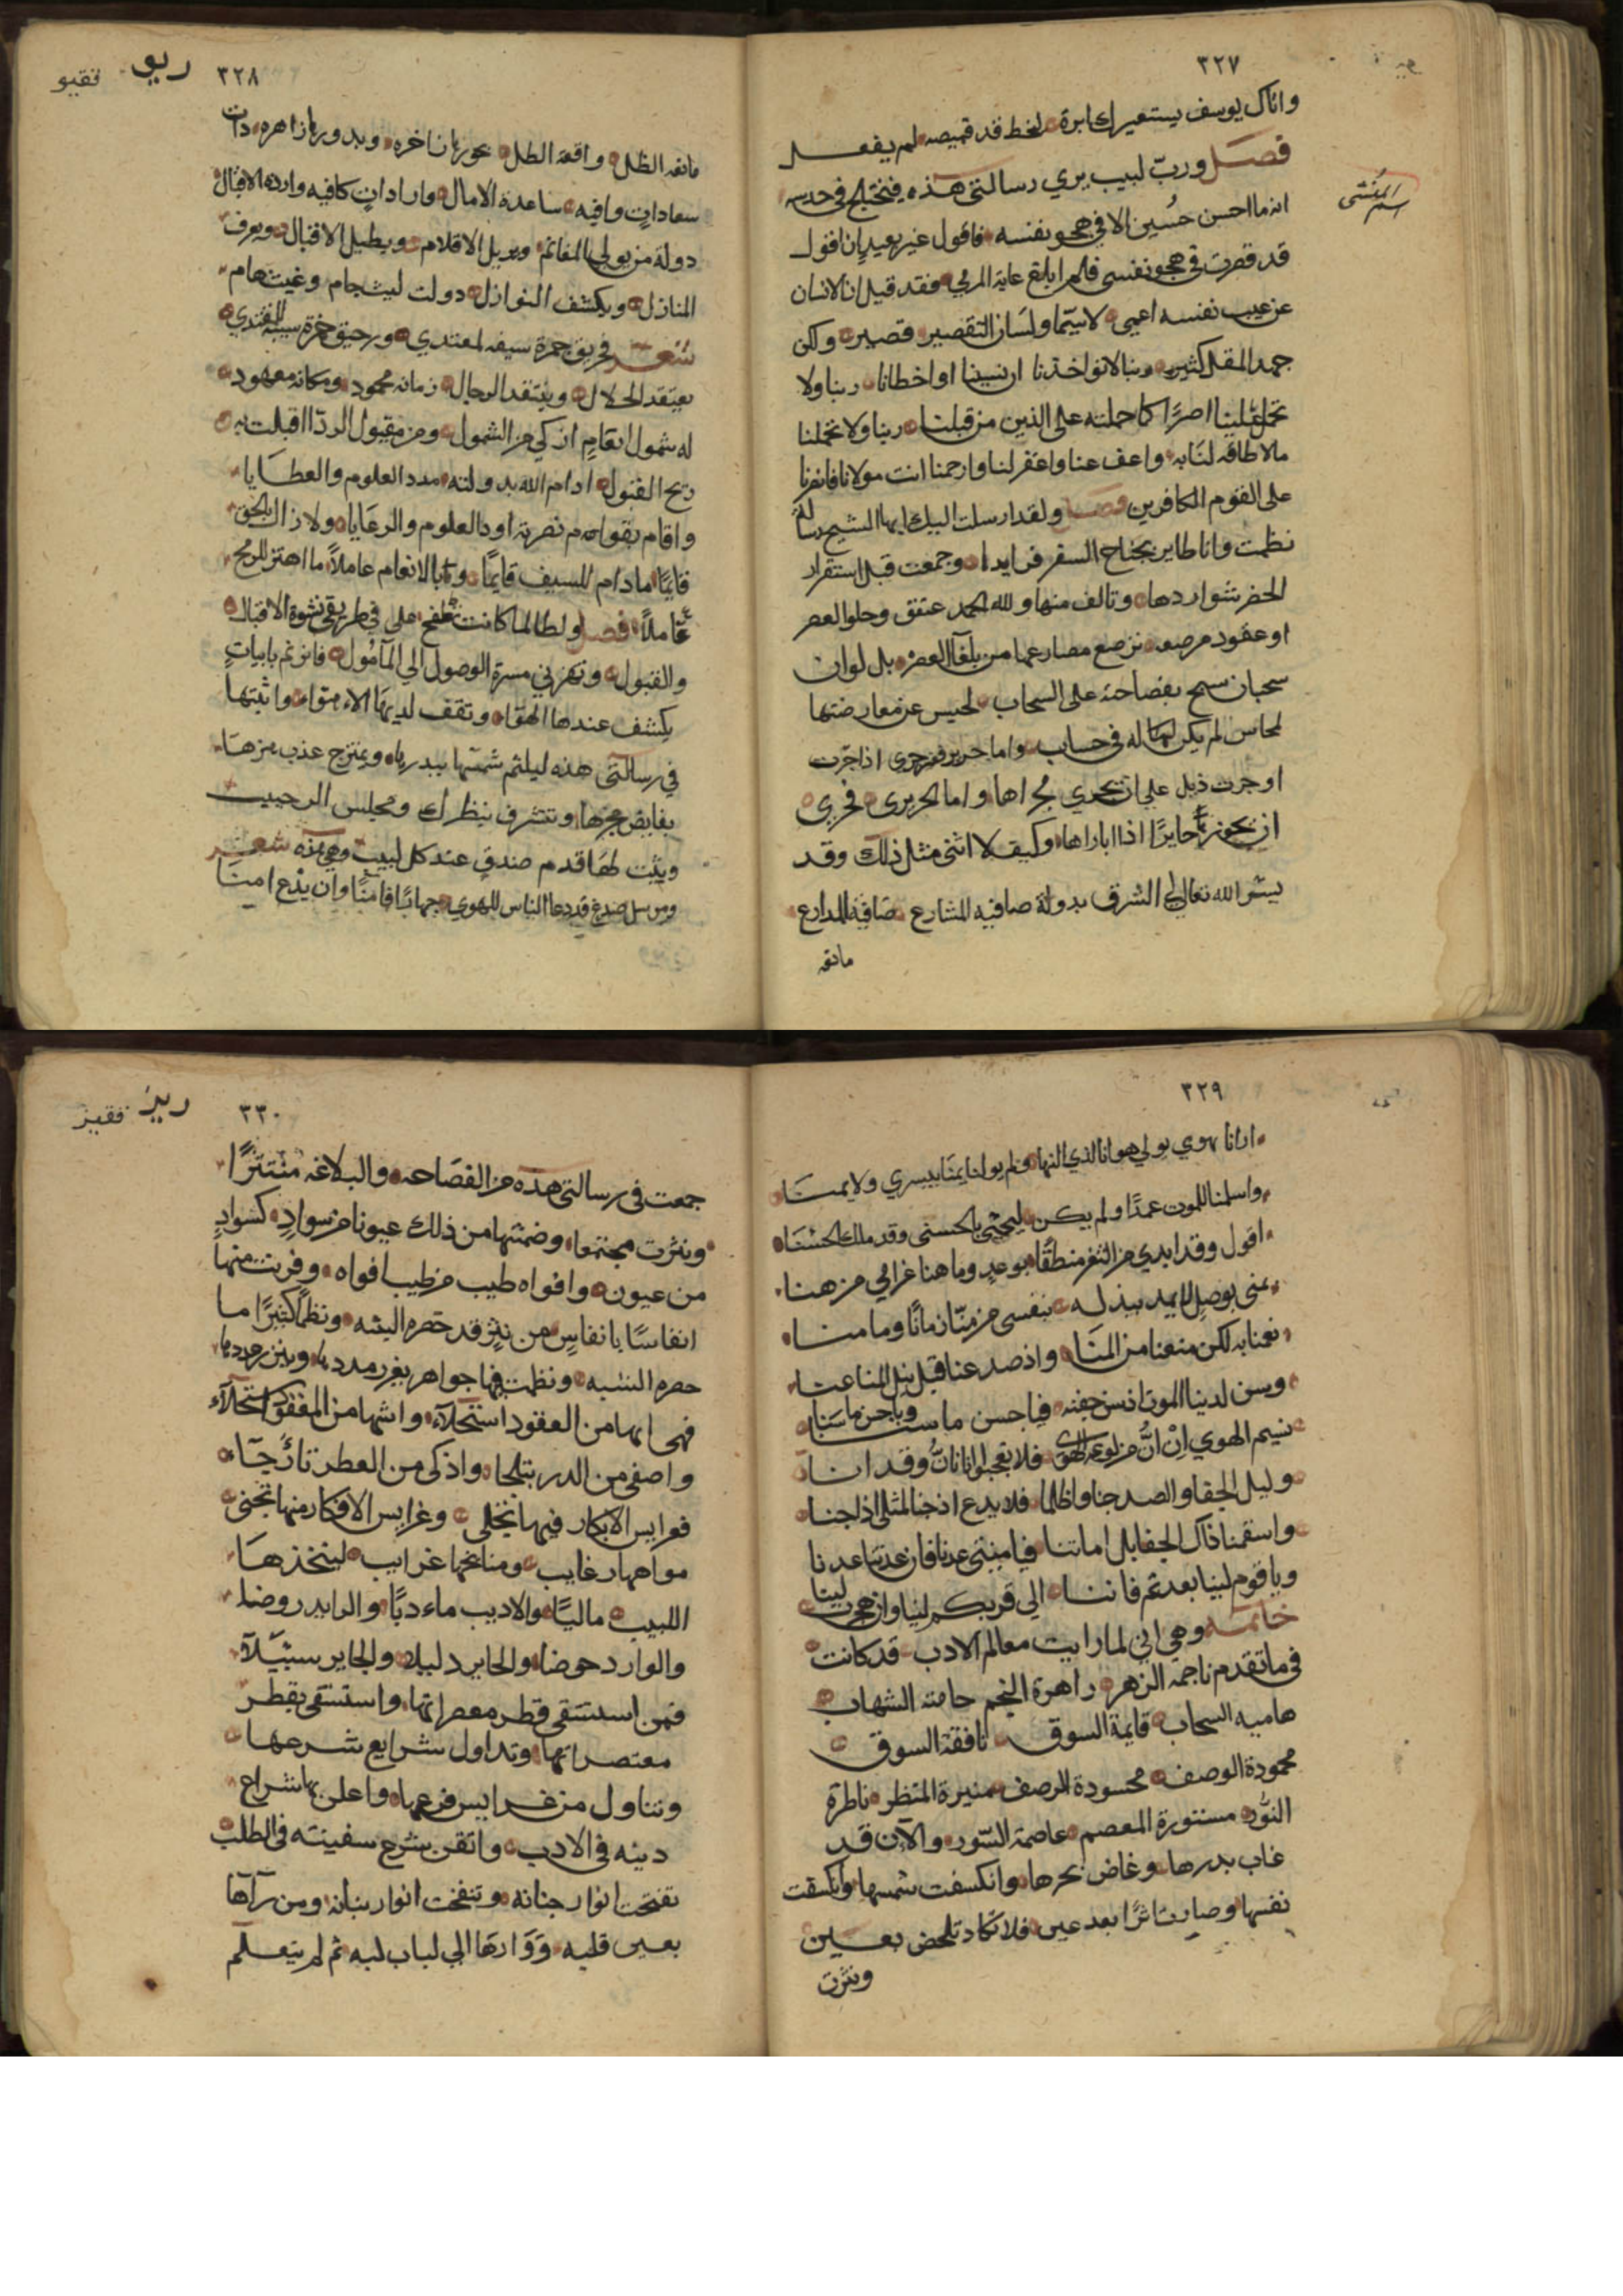 ٣٢٧
واتاك يوسف يستعيرك ابرة لخيط قد قميصه لم يفعل
فصل ورب لبيب يري رسالتي هذه فيختلج في حدسه
اسم المُنشى
انه ما احسن حُسين الا في هجو نفسه فاقول غير بعيد ان اقول
قد قصرت في هجو نفسي فلم ابلغ غاية المرمي فقد قيل ان الانسان
عن عيب نفسه اعمي لا سيّما ولسان التقصير قصير ولكن
جهد المقل كثير ربنا لا تواخذنا ان نسينا او اخطانا ربنا ولا
تحمل علينا اصرًا كما حملته على الذين من قبلنا ربنا ولا تحملنا
مالا طاقة لنا به واعف عنا واغفر لنا وارحمنا انت مولانا فانصرنا
على القوم الكافرين فصل ولقد ارسلت اليك ايها الشيخ رسالة
نظمت وانا طاير بجناح السفر فرايدها وجمعت قبل استقرار
الحضر شواردها وتالف منها ولله الحمد عتقق وحلوا لعصر
او عقود مرصعه نرصع مصارعها من بلغآ العصر بل لو ان
سحبان سمح بفصاحته على السحاب لحبس عن معارضتها
لمحاسن لم يكن لها له في حساب واما جرير فمزجري اذا جرت
او جرت ذيل على ان يجري مجراها واما الحريري فحري
ان يحور حايرًا اذا باراها وكيف لا اثنى مثل ذلك وقد
يسر الله تعالى الى الشرق بدولة صافية المشارع ضافية المدارع
مانعه
ريو فقيو
٣٢٨
مانعه الظل واقعة الطل بحورها زاخره وبدورها زاهره ذات
سعاداتٍ وافيه ساعدة الامال وارادات كافيه وارده الاقبال
دولة من يولي المغانم ويريل الاقلام ويطيل الاقبال ويعرف
المنازل ويكشف النوازل دولت ليث حام وغيث هام
شعر فحريق جمرة سيفه لمعتدي ورحيق خمرة سيبه للمقتدي
يعتقد الحلال وينتقد الرجال زمانه محمود ومكانه معهود
له شمول انعامٍ ازكي من الشمول ومن مقبول الرد اقبلت به
ريح القبول ادام الله بدولته مدد العلوم والعطايا
واقام بقوام نصرته اود العلوم والرعايا ولا زال بالحق
قايمًا ما دام للسيف قايمًا وبالانعام عاملًا ما اهتز للرمح
عاملًا فصل ولطالما كانت تطفح على في طريقي نشوة الاقبال
والقبول وتهزني مسرة الوصول الي المآمول فاترنم بابياتٍ
يكشف عندها الهوا وتقف لديها الاء متواء واثبتها
في رسالتي هذه ليلتم شمسها ببدرها ويمتزج عذب مزنها
بفايض بحرها وتتشرف بنظرك ومجلس الرحيب
ويثبت لها قدم صدق عند كل لبيب وهي هذه شعر
ومرسل صدغ قد دعا الناس للهوي جهابًا فامنّا وان يدع امينا
٣٢٩
ارانا بهوي يولي هوانا لذي النها ولم يولنا يمنًا بيسري ولا يمنا
واسلمنا للموت عمدًا ولم يكن ليجني الحسنى وقد ملك الحسنا
اقول وقد ابدي من الثغر منطقًا بوعدٍ وما هنا غرامي من هنا
بمنى بوصلٍ لا يريد ببذله بنفسى من منّا زمانًا وما منا
نعمنا به لكن منعنا من المنَا واذ صد عنا قبل نيل المنا عنا
ويسن لدينا الموت اذ سن جفنه فيا حسن ما سنا ويا حزن ما سنا
نسيم الهوي ان انّ من لوعه الهوى فلا تعجبوا انا نانّ وقد انا
وليل الجفا والصد جنا واظلما فلا بدع اذ جنا لمثلي اذ اجنا
واسقمنا ذاك الجفا بل اماتنا فيا منيتي عدنا فان عدتنا عدنا
ويا قوم لبينا بعدتم فاننا الي قربكم لبنا وان حجرت لبنا
خاتمه وهي اني لما رايت معالم الادب قد كانت
في ما تقدم ناجمة الزهر زاهرة النجم حامية الشهاب
هاميه السحاب قايمة السوق نافقة السوق
محمودة الوصف محسودة الرصف منيرة المنظر ناظرة
النُّور مستورة المعصم عاصمة السّور والآن قد
غاب بدرها وغاض بحرها وانكسفت شمسها وانكسفت
نفسها وصارت اثرًا بعد عين فلا تكاد تلحض بعين
ونثرت
ريز فقيز
٣٣٠
جمعت في رسالتي هذه من الفصاحه والبلاغه منتثرًا
ونثرت مجتمعا وضمنتها من ذلك عيونا من سوادٍ كسوادٍ
من عيون وافواه طيب من طيب افواه وفريت منها
انفاسًا بانفاسٍ من نثر قد حصره اليثه ونظمًا كثيرًا ما
حصره النسبه ونظمت فيها جواهر بغرر مددها وبين جددها
فهى ابها من العقود استحلآء واشها من المفقود استحلآء
واصفى من الدر بتلجا واذكى من العطر تارّجآ
فعرايس الابكار فيها تجلى وغرايس الافكار منها تجنى
مواهبها رغايب ومناجحها غرايب ليتخذها
اللبيب ماليًا والاديب ماء دبًا والرايد روضا
والوارد حوضا والحاير دليلا والجاير سبيلآ
فمن استسقى قطر معصراتها واستسقى بقطر
معتصراتها وتداول شرايع شرعها
وتناول من غرايس فرعها واعلن بها شراع
دينه في الادب واتقن بشرح سفينته في الطلب
تفتحت انوار جنانه وتنفخت انوار بنانه ومن رآها
بعين قلبه وَوَارَها الي لباب لبه ثم لم يتعلم